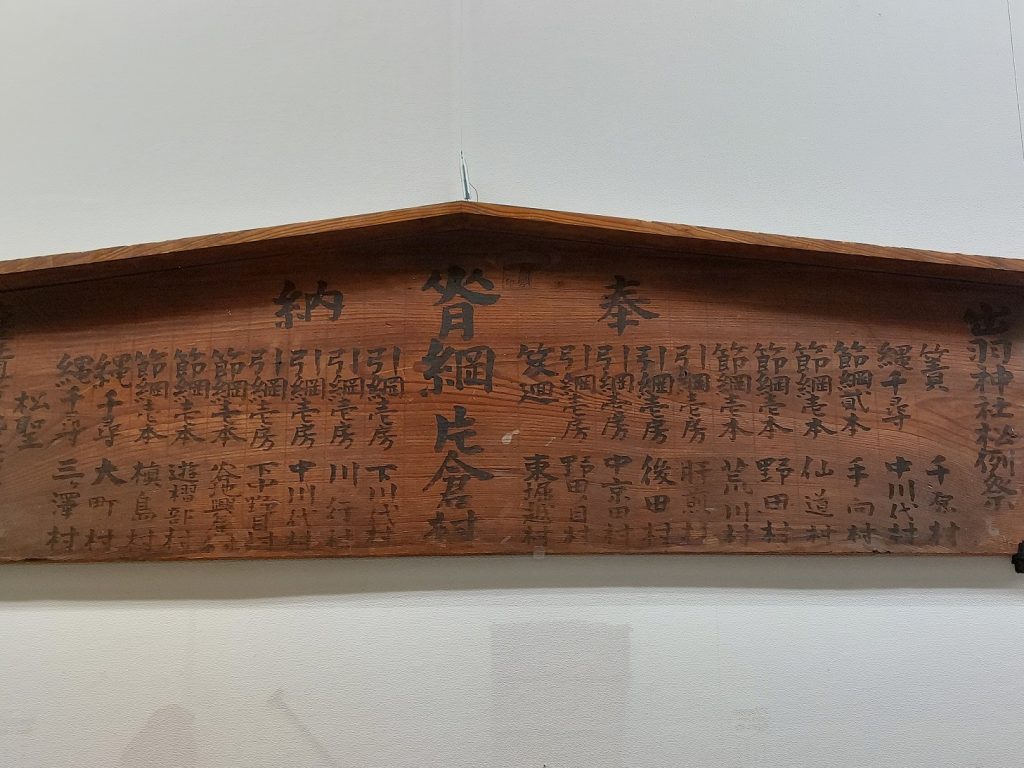 出羽神社松例祭
奉納
簀 千原村
縄千尋 中川代村
節綱貳本 手向村
節綱壱本 仙道村
節綱壱本 野田村
節綱壱本 荒川村
引綱壱房 肝煎村
引綱壱房 後田村
引綱壱房 中京田村
引綱壱房 野田目村
笈廻 東堀越村
脊綱 片倉村
引綱壱房 下川代村
引綱壱房 川行村
引綱壱房 中川代村
引綱壱房 下中野目村
節綱壱本
節綱壱本 遊摺部村
節綱壱本 槙島村
縄千尋 大町村
縄千尋 三ヶ澤村
松聖